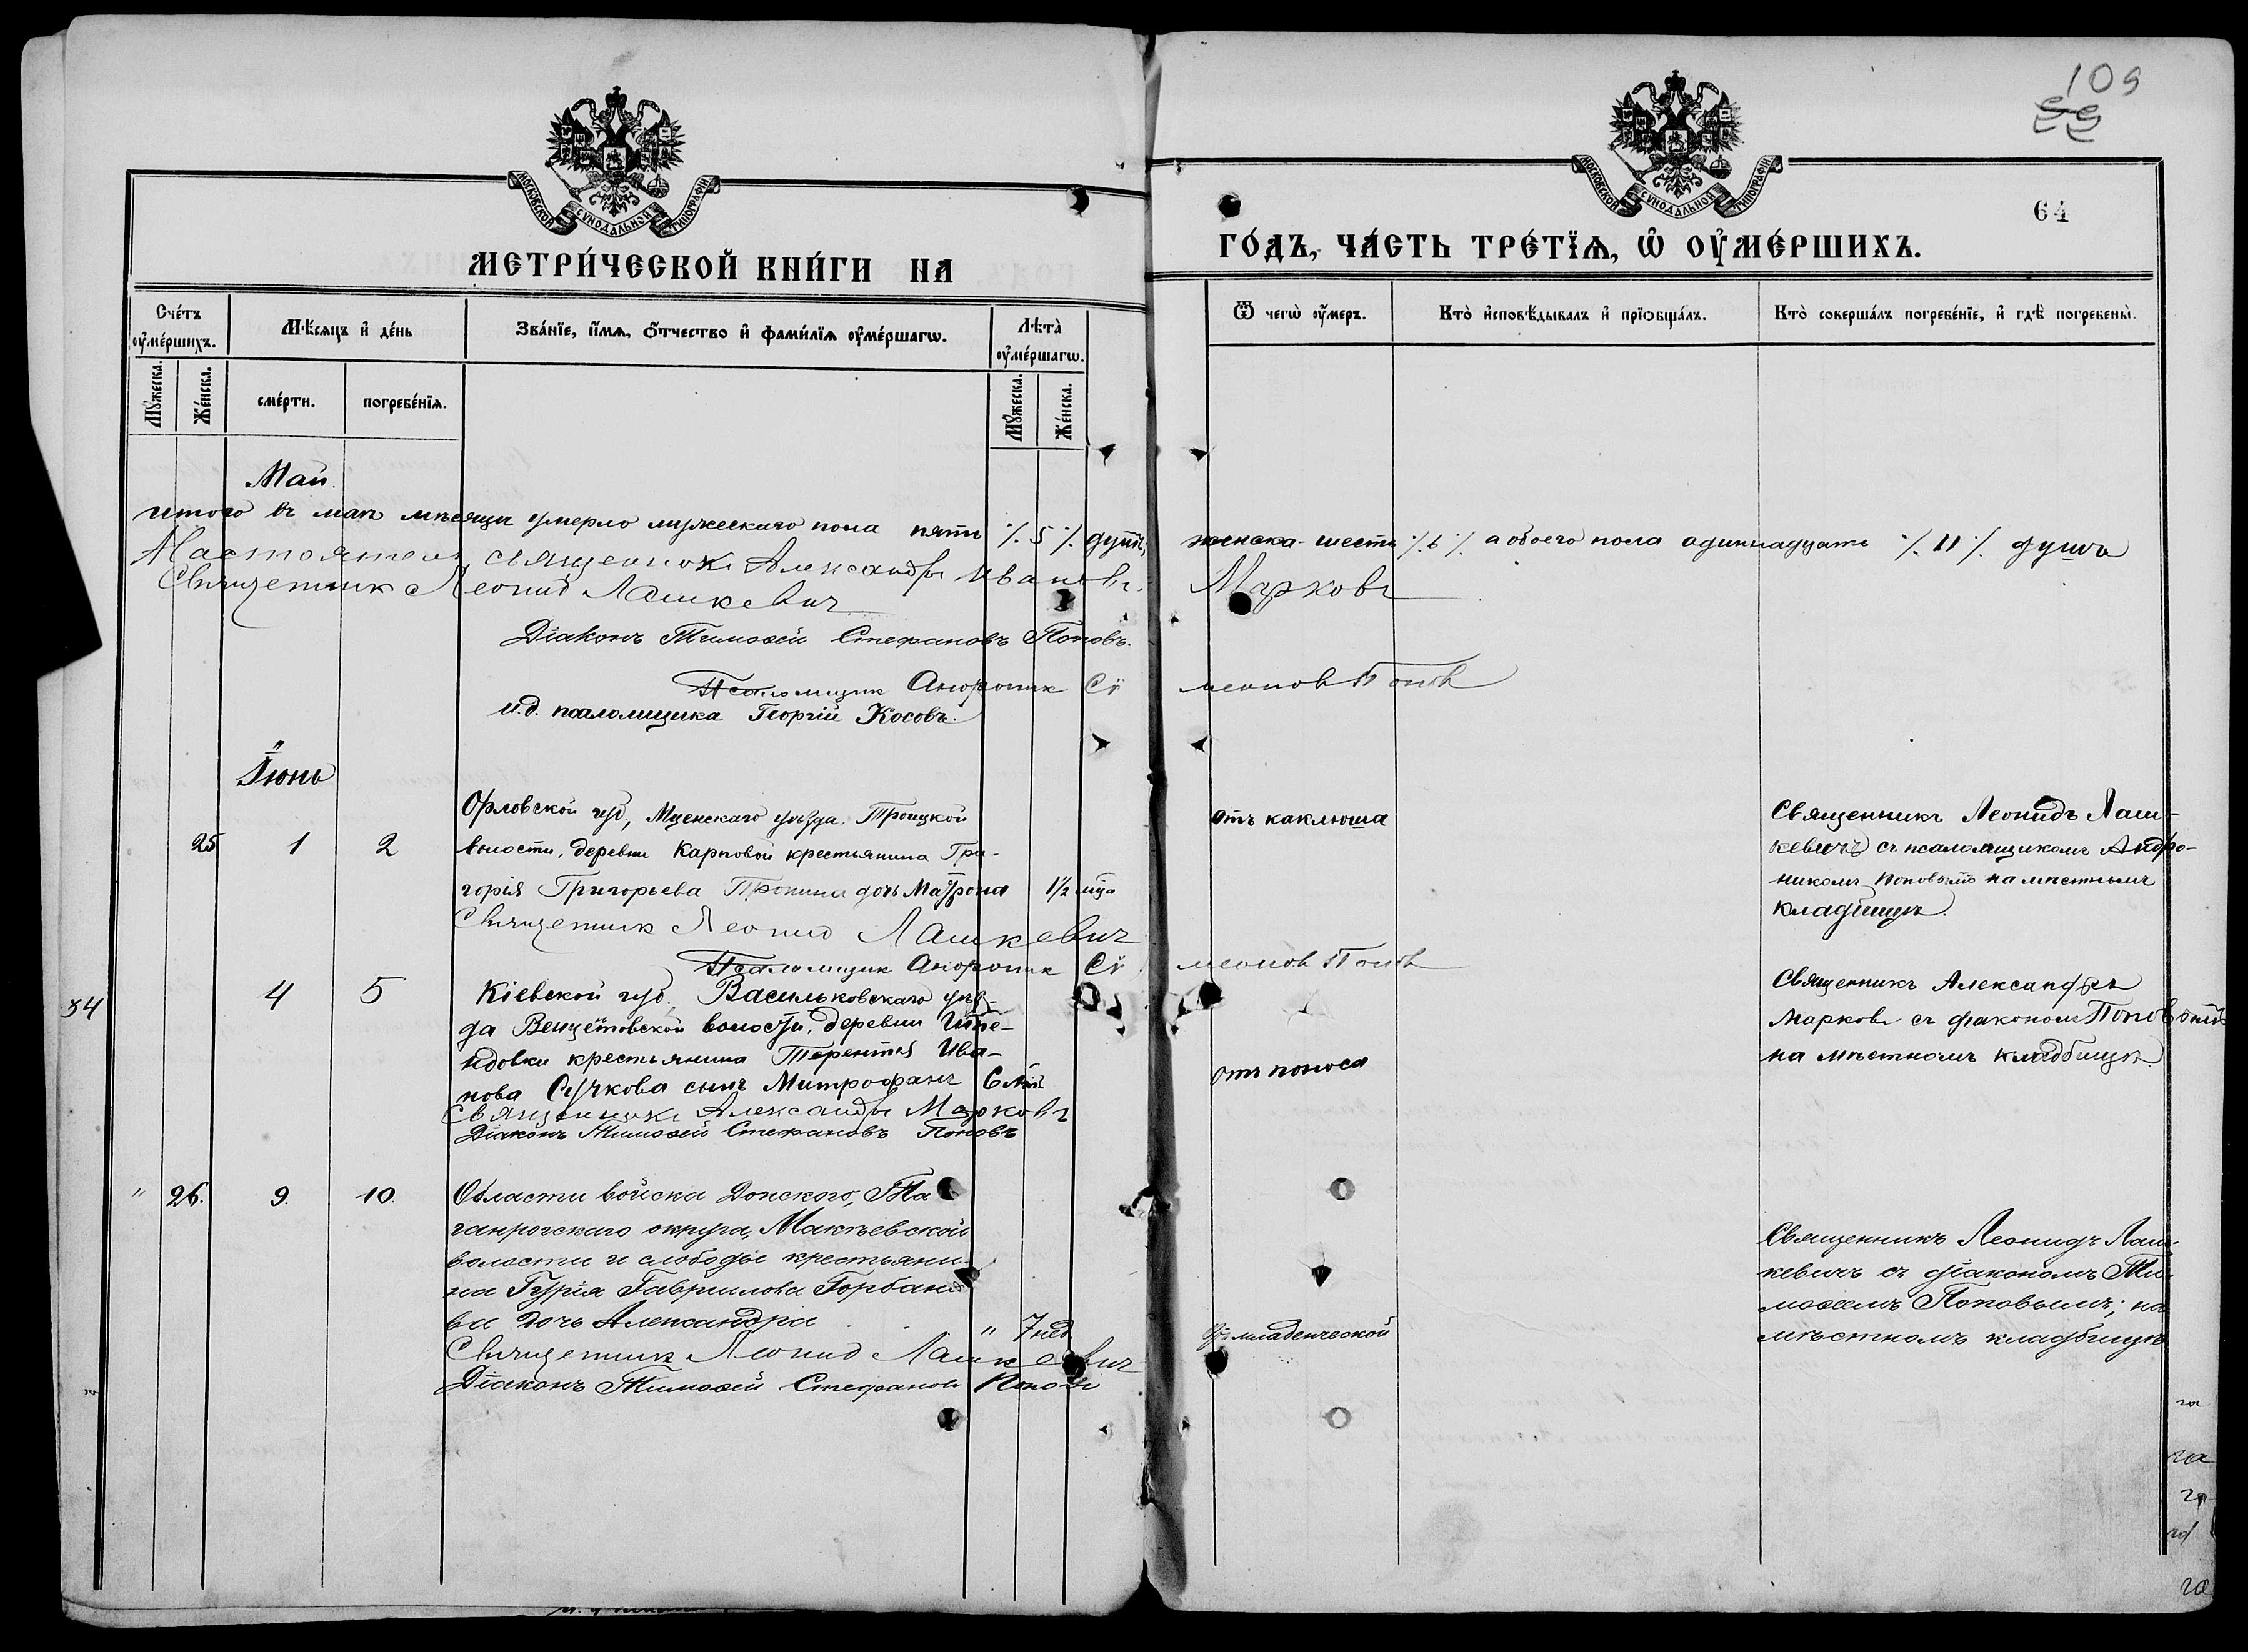 109
64
МОСКОВСКОЙ СУНОДАЛЬНОЙ ТИПОГРАФІИ
МОСКОВСКОЙ СУНОДАЛЬНОЙ ТИПОГРАФІИ
МЕТРИ́ЧЕСКОЙ КНИ́ГИ НА
ГО́ДЪ, ЧА́СТЬ ТРЕ́ТЇѦ, Ѡ҆ ОУ҆МЕ́РШИХЪ.
Сче́тъ оу҆ме́ршихъ.
Мѣ́сяцъ и҆ де́нь
Зва́нїе, и҆́мѧ, ѻ҆́тчество и҆ фами́лїѧ оу҆ме́ршагѡ.
Лѣта̀ оу҆ме́ршагѡ.
Ѿ чегѡ̀ оу҆́меръ.
Кто̀ и҆сповѣ́дывалъ и҆ прїѻбща́лъ.
Кто̀ соверша́лъ погребе́нїе, и҆ гдѣ̀ погребены̀.
Мꙋ́жеска.
Же́нска.
сме́рти.
погребе́нїѧ.
Мꙋ́жеска.
Же́нска.
Май.
итого въ маѣ мѣсяцѣ умерло мужескаго пола пять ٪ 5 ٪ душъ, женска шесть ٪ 6 ٪ а обоего пола одиннадцать ٪ 11 ٪ душъ
Настоятель, священникъ Александръ Ивановъ Марковъ
Священник Леонид Лашкевич
Діаконъ Тимоѳей Стефановъ Поповъ.
Псаломщик Андроник Сѵмеонов Попов
И.д. псаломщика Георгій Косовъ.
Іюнь
25 1 2
Орловской губ, Мценскаго уѣзда, Троицкой
волости, деревни Карповой крестьянина Гри-
горія Григорьева Пронина дочь Матрона 1½ мца
отъ каклюша
Священникъ Леонидъ Лаш-
кевичъ съ псаломщикомъ Андро-
никомъ Поповымъ на мѣстномъ
кладбищѣ.
Священник Леонид Лашкевич
Псаломщик Андроник Сѵмеонов Попов
34 4 5
Кіевской губ. Васильковскаго уѣз-
да волости, деревни
крестьянина Терентія Ива-
нова Сучкова сынъ Митрофанъ 6 лѣт
отъ поноса
Священникъ Александръ
Марковъ съ діакономъ Поповымъ
на мѣстномъ кладбищѣ.
Священникъ Александръ Марковъ
Діаконъ Тимоѳей Стефановъ Поповъ
" 26. 9. 10.
Области войска Донского, Та-
ганрогскаго округа, Макѣевской
волости и слободы крестьяни-
на Гурія Гаврилова Горбане-
ва дочь Александра " 7 нед.
отъ младенческой
Священникъ Леонидъ Лаш-
кевичъ съ діакономъ Ти-
моѳеемъ Поповымъ; на
мѣстномъ кладбищѣ
Священник Леонид Лашкевич
Діаконъ Тимоѳей Стефановъ Поповъ